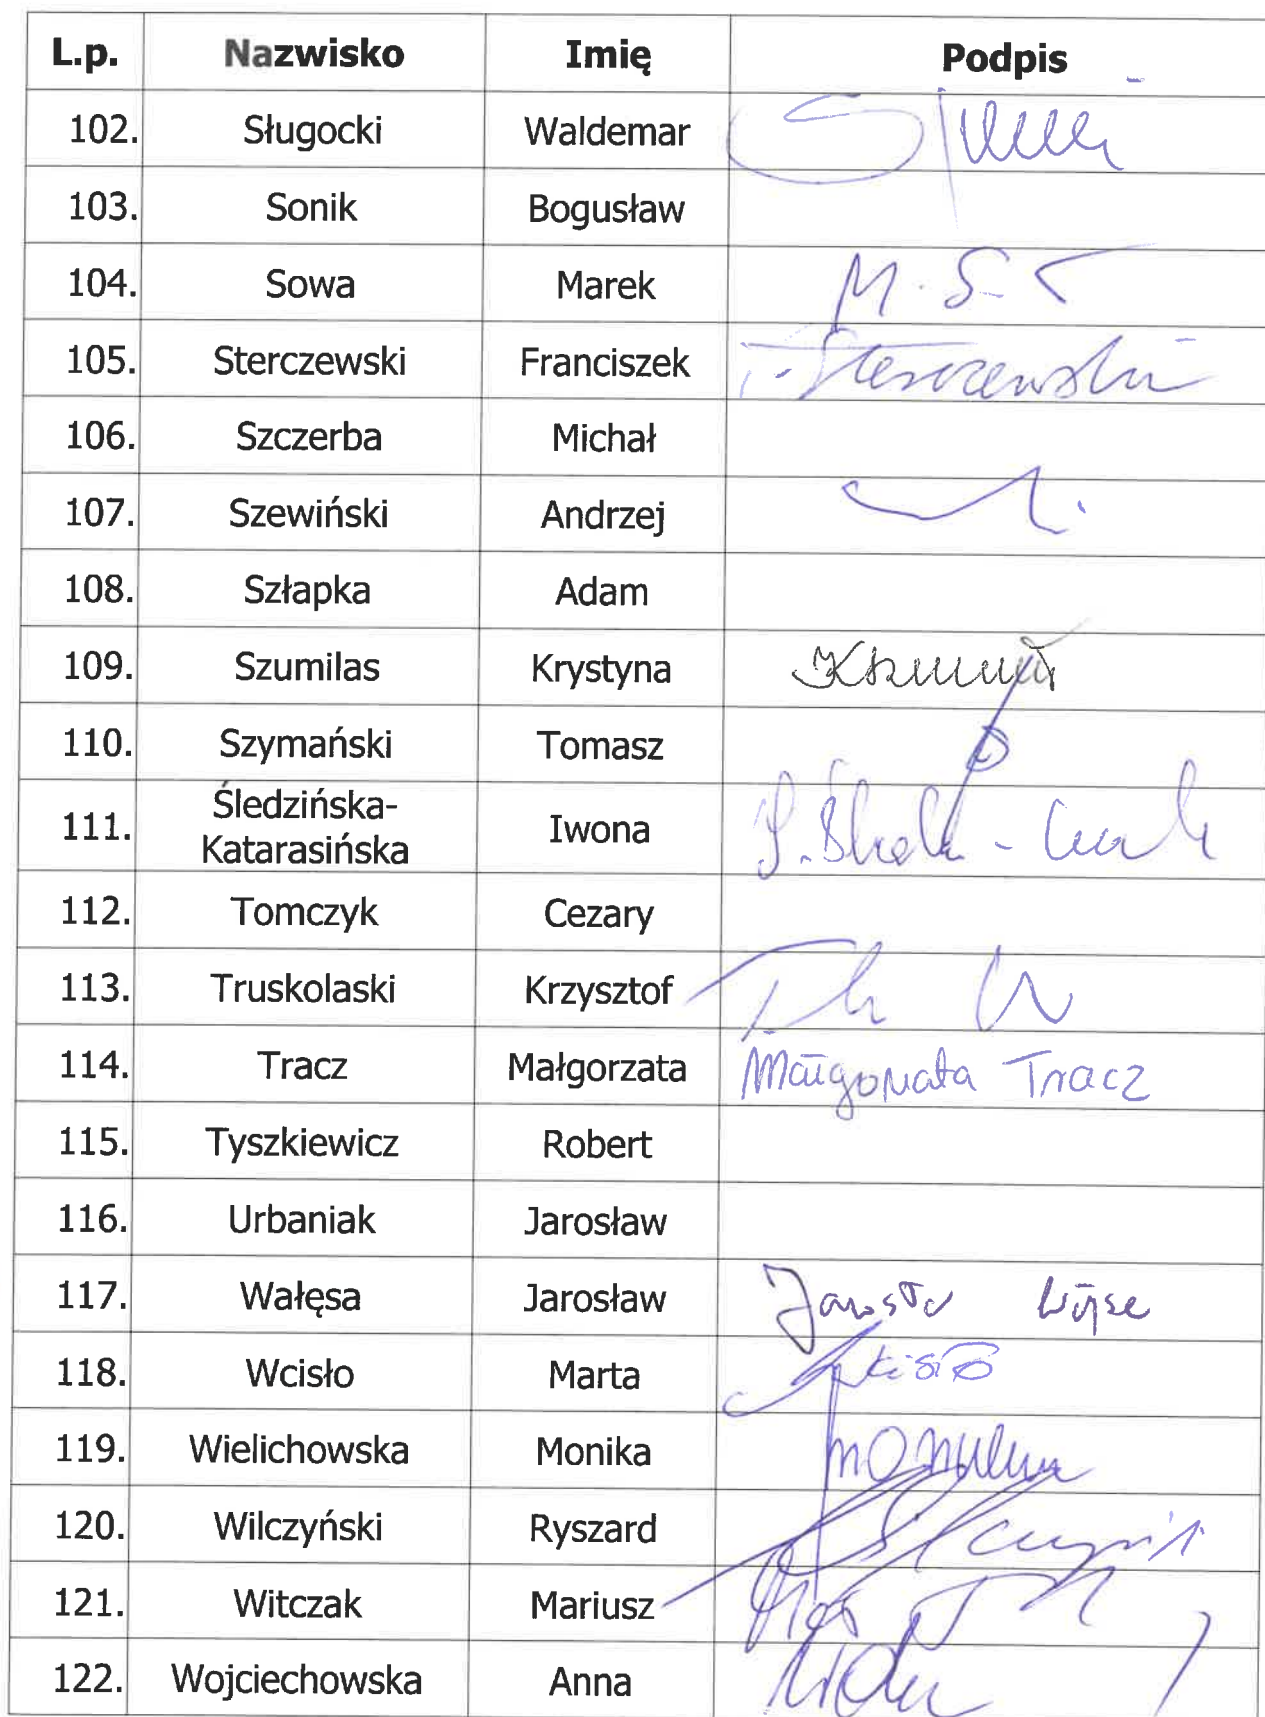 L.p. Nazwisko Imię Podpis
102. Sługocki Waldemar
103. Sonik Bogusław
104. Sowa Marek M. S
105. Sterczewski Franciszek F. Sterczewski
106. Szczerba Michał
107. Szewiński Andrzej
108. Szłapka Adam
109. Szumilas Krystyna
110. Szymański Tomasz
111. Śledzińska-
Katarasińska Iwona
112. Tomczyk Cezary
113. Truskolaski Krzysztof
114. Tracz Małgorzata Małgorzata Tracz
115. Tyszkiewicz Robert
116. Urbaniak Jarosław
117. Wałęsa Jarosław
118. Wcisło Marta
119. Wielichowska Monika
120. Wilczyński Ryszard
121. Witczak Mariusz
122. Wojciechowska Anna